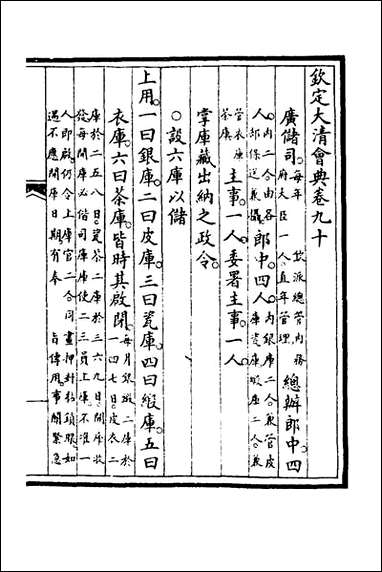 欽定大清會典卷九十
廣儲司。每年 欽派總管內務府大臣一人。直年管理。總辦郎中四
人。內二人由各部保送兼攝。郎中四人。內銀庫二人。兼管皮庫瓷庫。緞庫二人。兼
管衣庫茶庫。主事一人。委署主事一人。
掌庫藏出納之政令。
○設六庫以儲
上用。一曰銀庫。二曰皮庫。三曰瓷庫。四曰緞庫。五曰
衣庫。六曰茶庫。皆時其啟閉。每月銀緞二庫於一四七日。皮衣二
庫於二五八日。瓷茶二庫於三六九日。開庫收發。每開庫必偕司庫庫使二三員上庫。不准一
人即啟。仍令上庫官二人合同畫押封於鎖眼。如遇不應開庫日期有奉 旨傳用。事關緊急